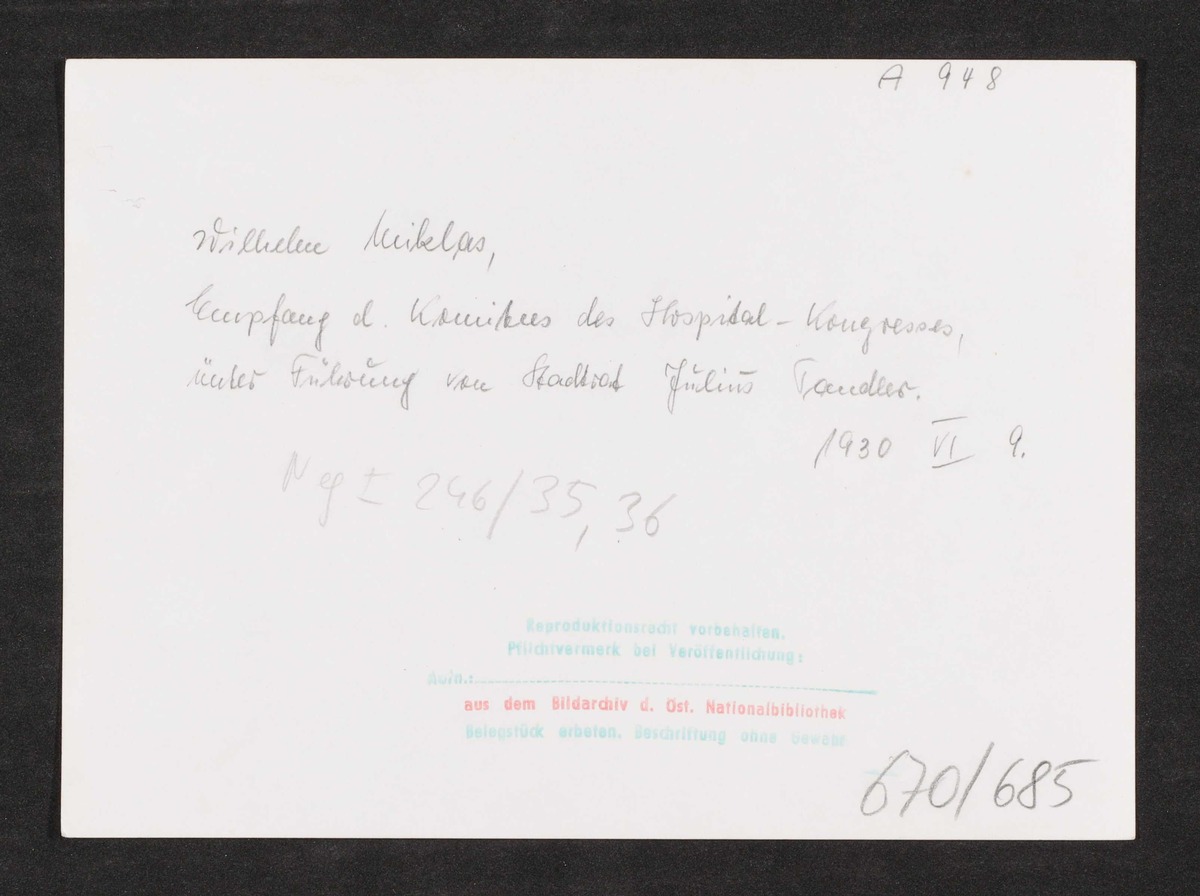 A 948
Wilhelm Miklas,
Empfang d. Komitees des Hospital-Kongresses,
unter Führung von Stadtrat Julius Tandler.
1930 VI 9.
Neg I 246/35, 36
Reproduktionsrecht vorbehalten.
Pflichtvermerk bei Veröffentlichung:
Aufn.:
aus dem Bildarchiv d. Öst. Nationalbibliothek
Belegstück erbeten. Beschriftung ohne Gewähr
670/685